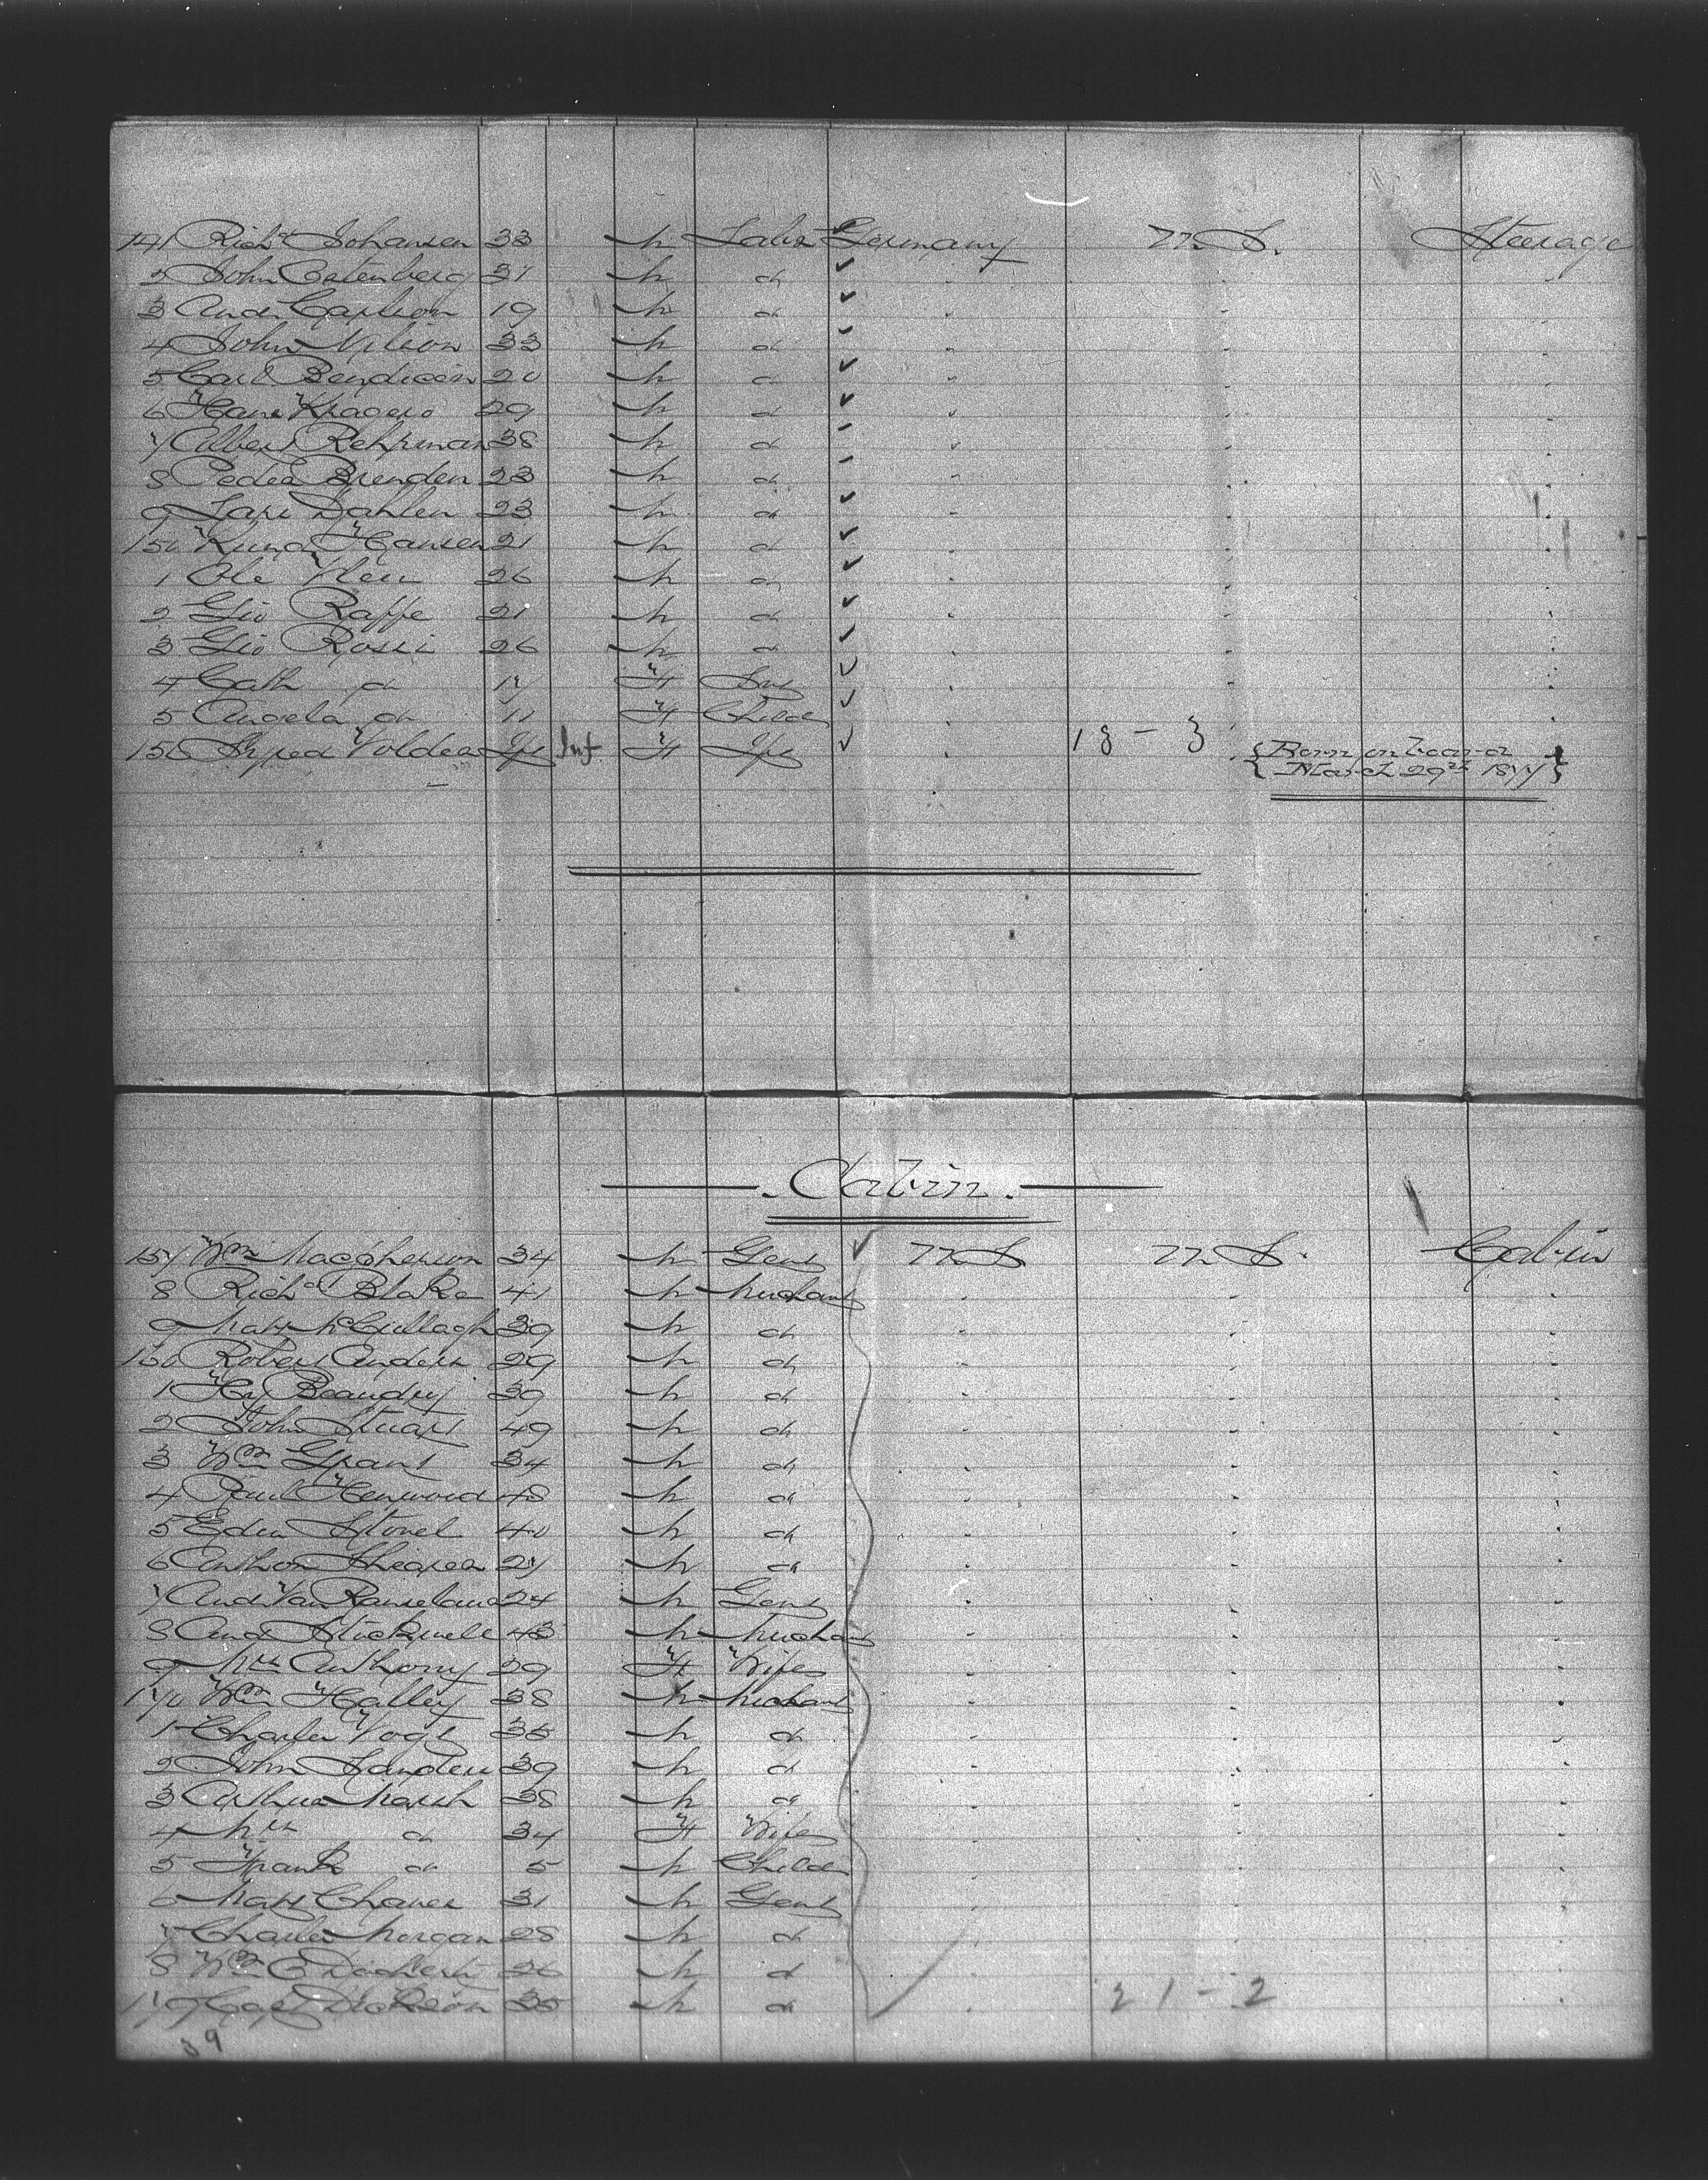 141 Rich^d Johansen 33 m Labr Germany U.S. Steerage
2 John Ostenberg 31 m do
3 And. Carlson 19 m do
4 John Nilson 33 m do
5 Carl Bendicson 20 m do
6 Hans Kragero 29 m do
7 Albert Rehpman 38 m do
8 Peder Brenden 23 m do
9 Lars Dahlen 23 m do
150 Knud Hansen 21 m do
1 Ole 26 m do
2 Gio Raffe 21 m do
3 Gio Rossi 26 m do
4 Cath do 17 F
5 Angela do 11 F Child
156 Voldea Inf Inf F Inf 18 - 3 {Born on board
March 29th 1877}
Cabin.
157 Wm Macpherson 34 m Gent U.S. U.S. Cabin
8 Rich^d Blake 41 m Merchant
9 Mat McCullagh 39 m do
160 Robert Anders 29 m do
1 Hy Beaudry 39 m do
2 John Stuart 49 m do
3 Wm Grant 34 m do
4 Paul Henwood 48 m do
5 Eden Stovel 40 m do
6 Shearer 27 m do
7 And. Van 24 m Gent
8 And Stockwell 43 m Merchant
9 Mrs Anthony 29 F Wife
170 Wm Halley 38 m Merchant
1 Charles Vogt 35 m do
2 John Sanders 39 m do
3 Arthur Marsh 38 m do
4 Mrs do 34 F Wife
5 Frank do 5 m Child
6 Mat 31 m Gent
7 Charles Morgan 28 m do
8 Wm C Docherty 26 m do
179 Capt Dickson 35 m do 21 - 2
39